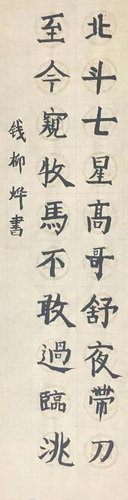 北斗七星高哥舒夜帶刀
至今窺牧馬不敢過臨洮
钱柳烨書